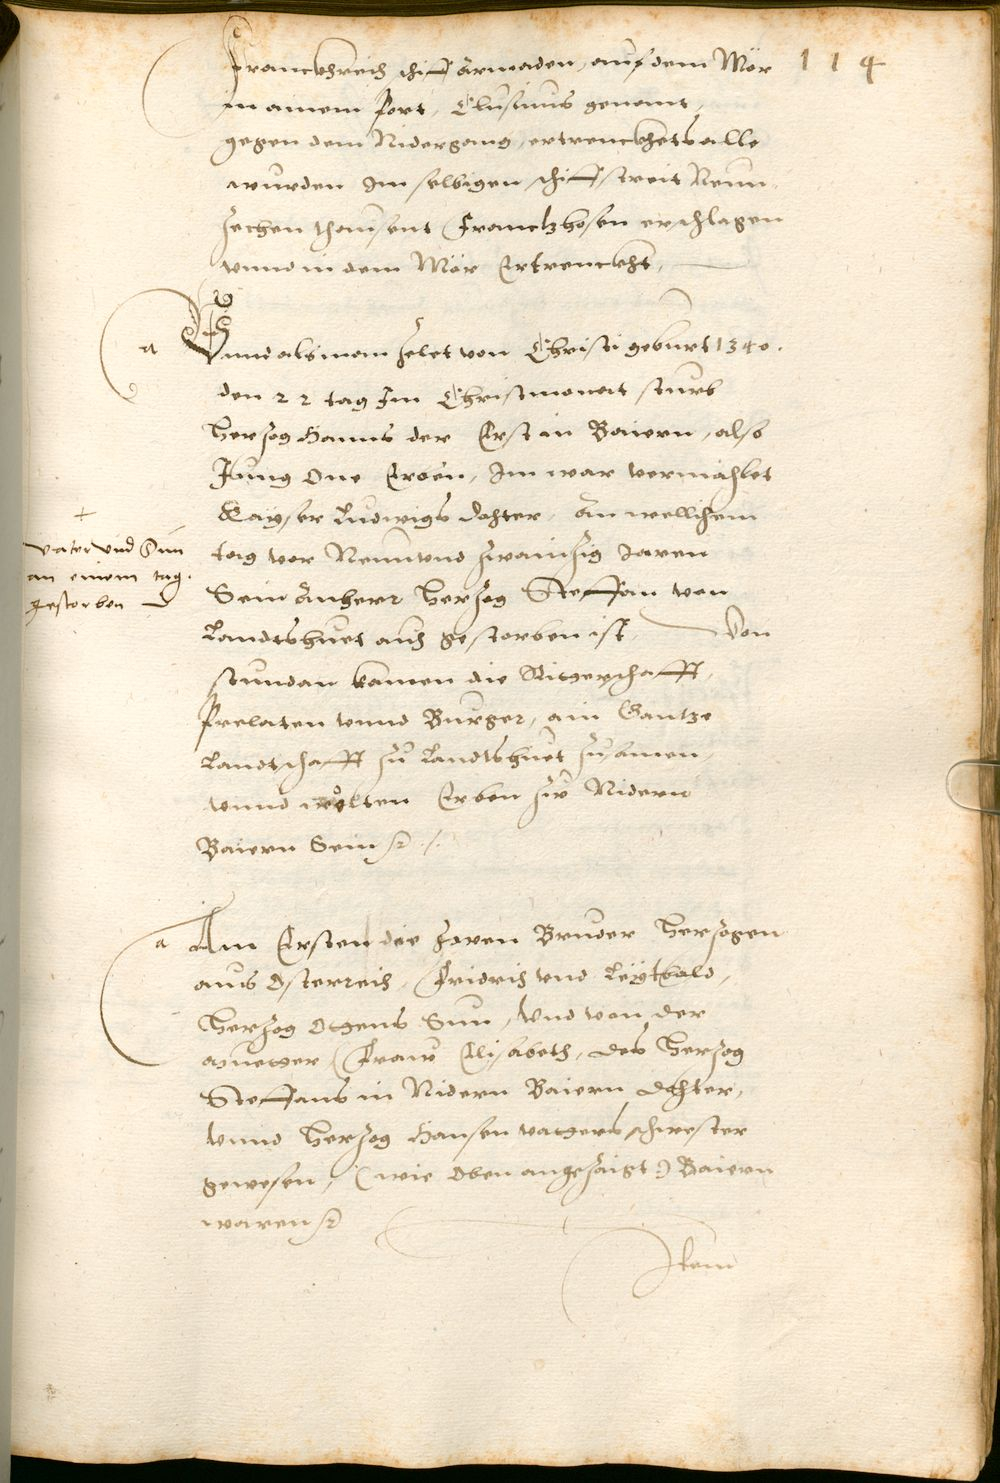 114
Franckhreich schiff Armaden, auf dem Mör
in ainem Port, Clusinus genant,
gegen dem Nidergang, ertrenckhets alle
wurden Im selbigen schiff streit Neun-
zechen thausent Frantzhosen erschlagen
vnnd in dem Mör Ertrenckht,
a Vnnd als man zelet von Christi geburt 1340.
den 22 tag Im Christmonat sturb
Herzog Hanns der Erst in Baiern, also
Jung One Erben, Im war vermählet
Kayser Ludwigs dohter. An wellichem
tag vor Neun vnd zwainzig Jaren
Sein Anherr Herzog Steffan von
Landtshuet auch gestorben ist, Von
stundan kamen die Ritterschafft,
Prelaten vnnd Burger, ain Gantze
Landtschafft zu Landtshuet zusamen,
vnnd wolten Erben für Nidern
Baiern Sein
+
vater vnd Sun
an einem tag.
gestorben
a Am Ersten die zwen Bruder Herzogen
aus Österreich, Fridrich vnd Leytbald,
Herzog Ottens Sun, Vnd von der
muetter Fraw Elisabeth, des Herzog
Steffans in Nidern Baiern dohter,
Vnnd Herzog Hansen vatters schwester
gewesen, (wie Oben angezaigt) Baiern
waren
Item